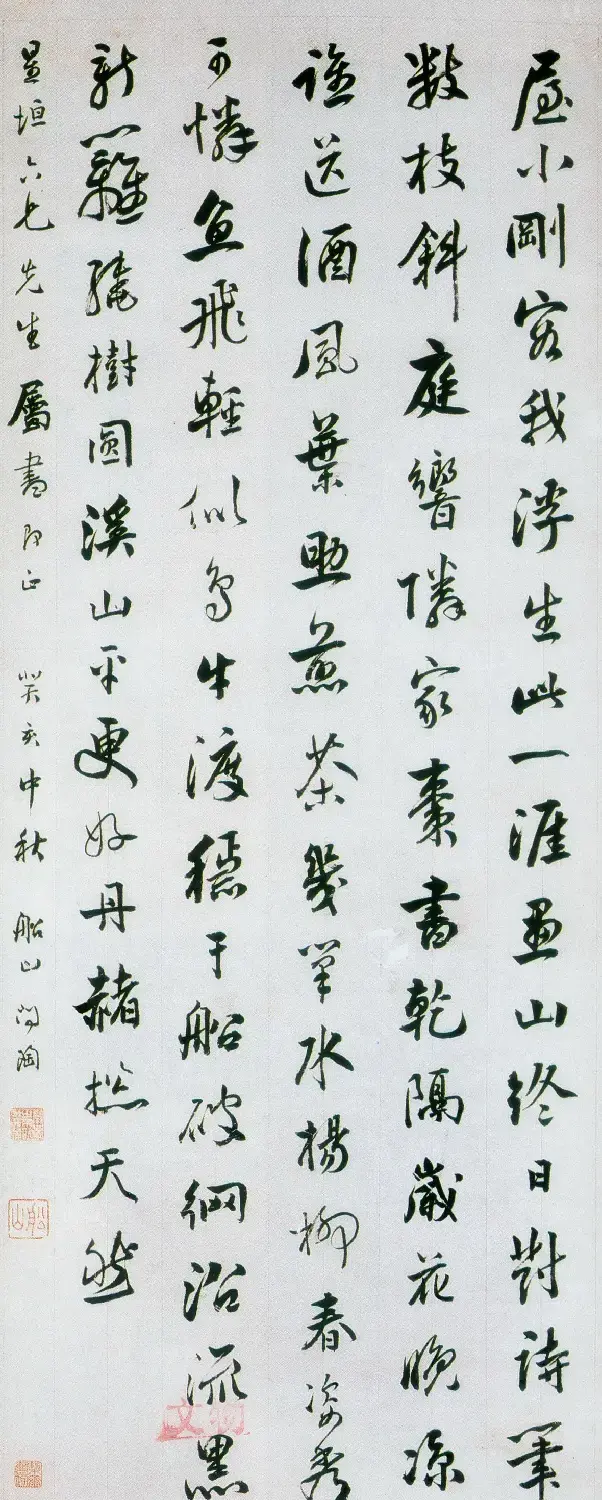 屋小剛容我浮生此一涯畫山終日對詩筆
數枝斜庭響隣家棗書乾隔歲花晚涼
誰送酒風葉助煎茶幾水楊柳春姿秀
可憐魚飛輕似鳥牛渡穩于船破網沿流黑
新籬繞樹圓溪山平更好丹赭捴天然
星垣六先生屬書即正 癸亥中秋 船山問陶
船山